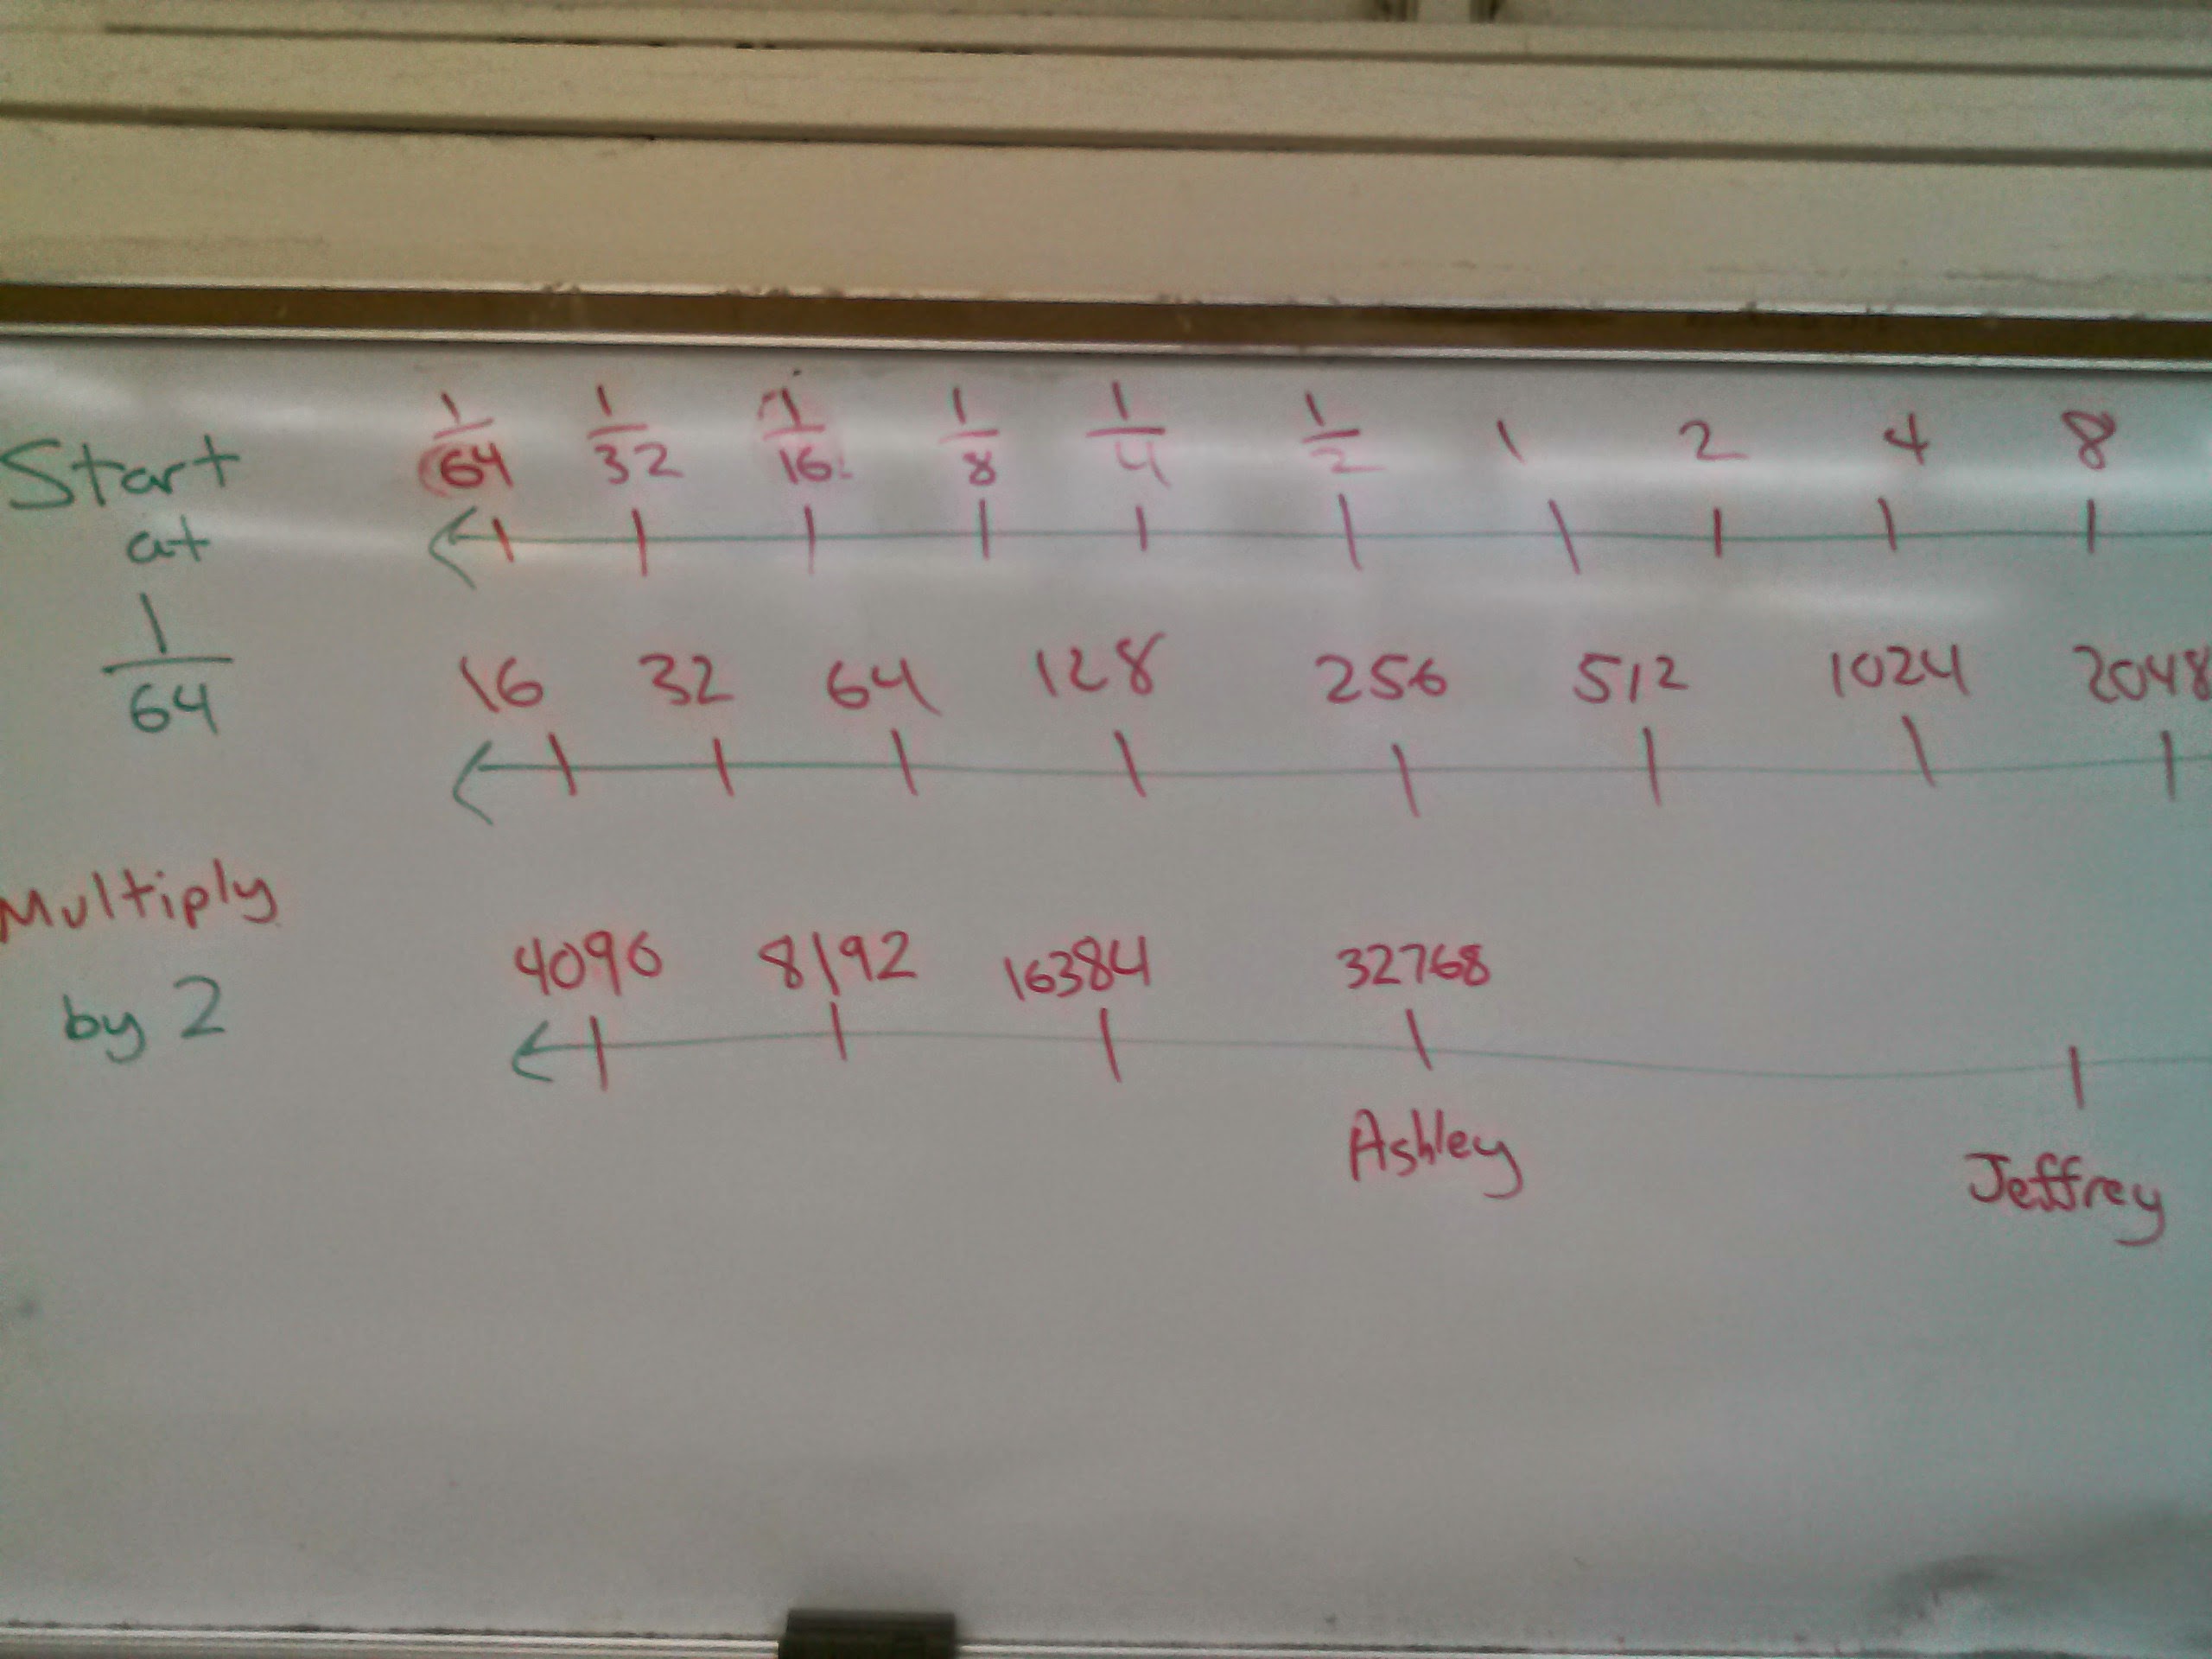 Start
at
1/64
Multiply
by 2
1/64 1/32 1/16 1/8 1/4 1/2 1 2 4 8
16 32 64 128 256 512 1024 2048
4096 8192 16384 32768
Ashley
Jeffrey